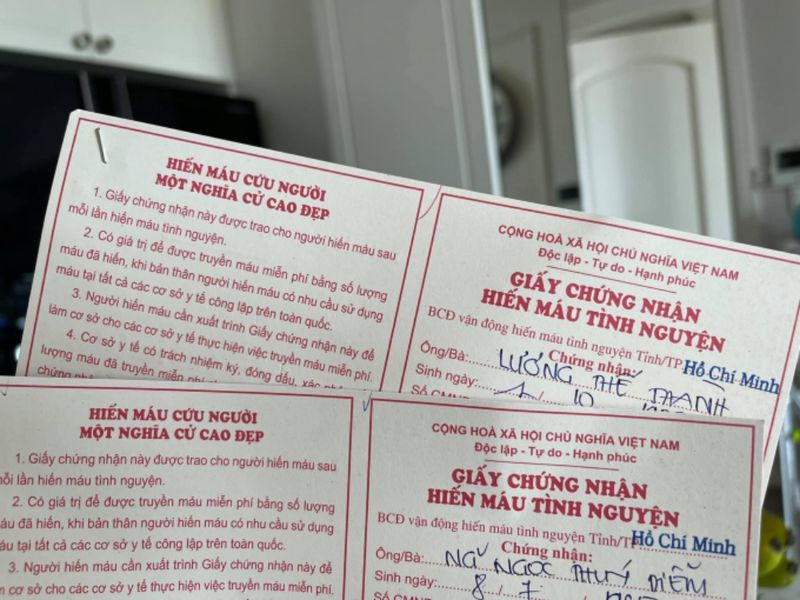 HIẾN MÁU CỨU NGƯỜI
MỘT NGHĨA CỬ CAO ĐẸP
1. Giấy chứng nhận này được trao cho người hiến máu sau
mỗi lần hiến máu tình nguyện.
2. Có giá trị để được truyền máu miễn phí bằng số lượng
máu đã hiến, khi bản thân người hiến máu có nhu cầu sử dụng
máu tại tất cả các cơ sở y tế công lập trên toàn quốc.
3. Người hiến máu cần xuất trình Giấy chứng nhận này để
làm cơ sở cho các cơ sở y tế thực hiện việc truyền máu miễn phí.
4. Cơ sở y tế có trách nhiệm ký, đóng dấu, xác nhận
lượng máu đã truyền miễn phí
chứng nhận
CỘNG HOÀ XÃ HỘI CHỦ NGHĨA VIỆT NAM
Độc lập - Tự do - Hạnh phúc
GIẤY CHỨNG NHẬN
HIẾN MÁU TÌNH NGUYỆN
BCĐ vận động hiến máu tình nguyện Tỉnh/TP Hồ Chí Minh
Chứng nhận:
Ông/Bà: LƯƠNG THẾ THÀNH
Sinh ngày: 1 / 10
Số CMND
HIẾN MÁU CỨU NGƯỜI
MỘT NGHĨA CỬ CAO ĐẸP
1. Giấy chứng nhận này được trao cho người hiến máu sau
mỗi lần hiến máu tình nguyện.
2. Có giá trị để được truyền máu miễn phí bằng số lượng
máu đã hiến, khi bản thân người hiến máu có nhu cầu sử dụng
máu tại tất cả các cơ sở y tế công lập trên toàn quốc.
3. Người hiến máu cần xuất trình Giấy chứng nhận này để
làm cơ sở cho các cơ sở y tế thực hiện việc truyền máu miễn phí.
CỘNG HOÀ XÃ HỘI CHỦ NGHĨA VIỆT NAM
Độc lập - Tự do - Hạnh phúc
GIẤY CHỨNG NHẬN
HIẾN MÁU TÌNH NGUYỆN
BCĐ vận động hiến máu tình nguyện Tỉnh/TP Hồ Chí Minh
Chứng nhận:
Ông/Bà: NGÔ NGỌC THUÝ DIỄM
Sinh ngày: 8 / 7
Số CMND